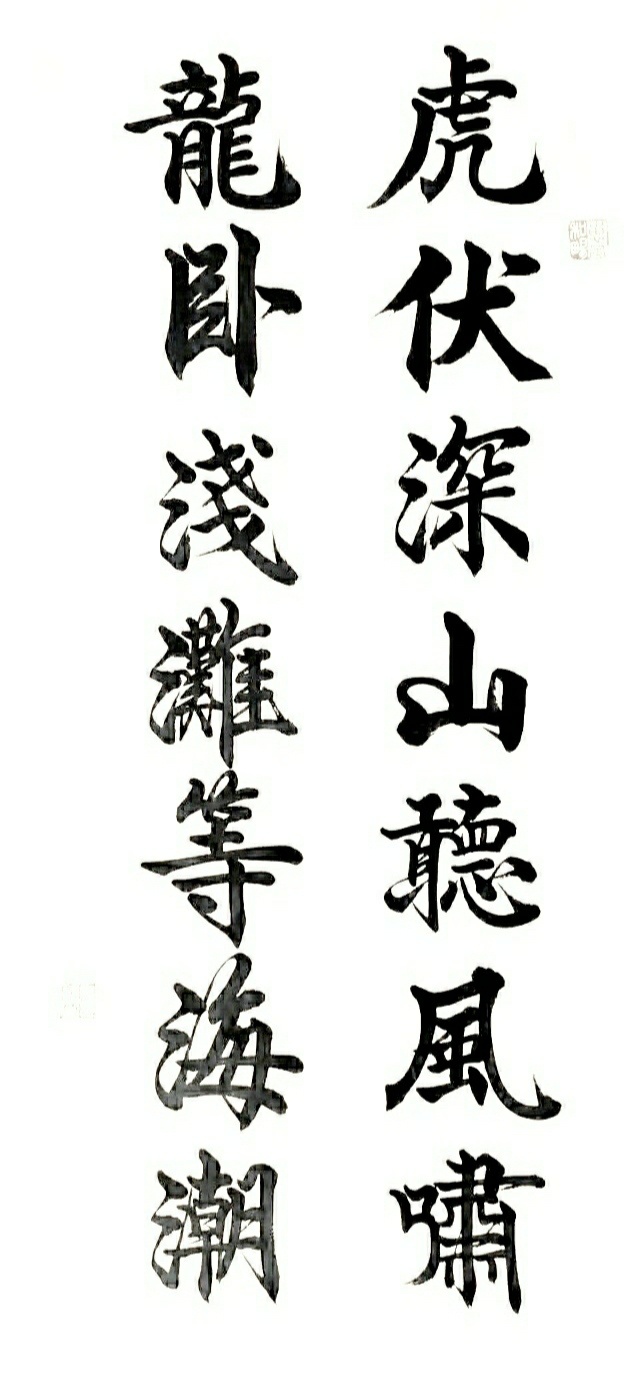 虎伏深山聽風嘯
龍卧淺灘等海潮